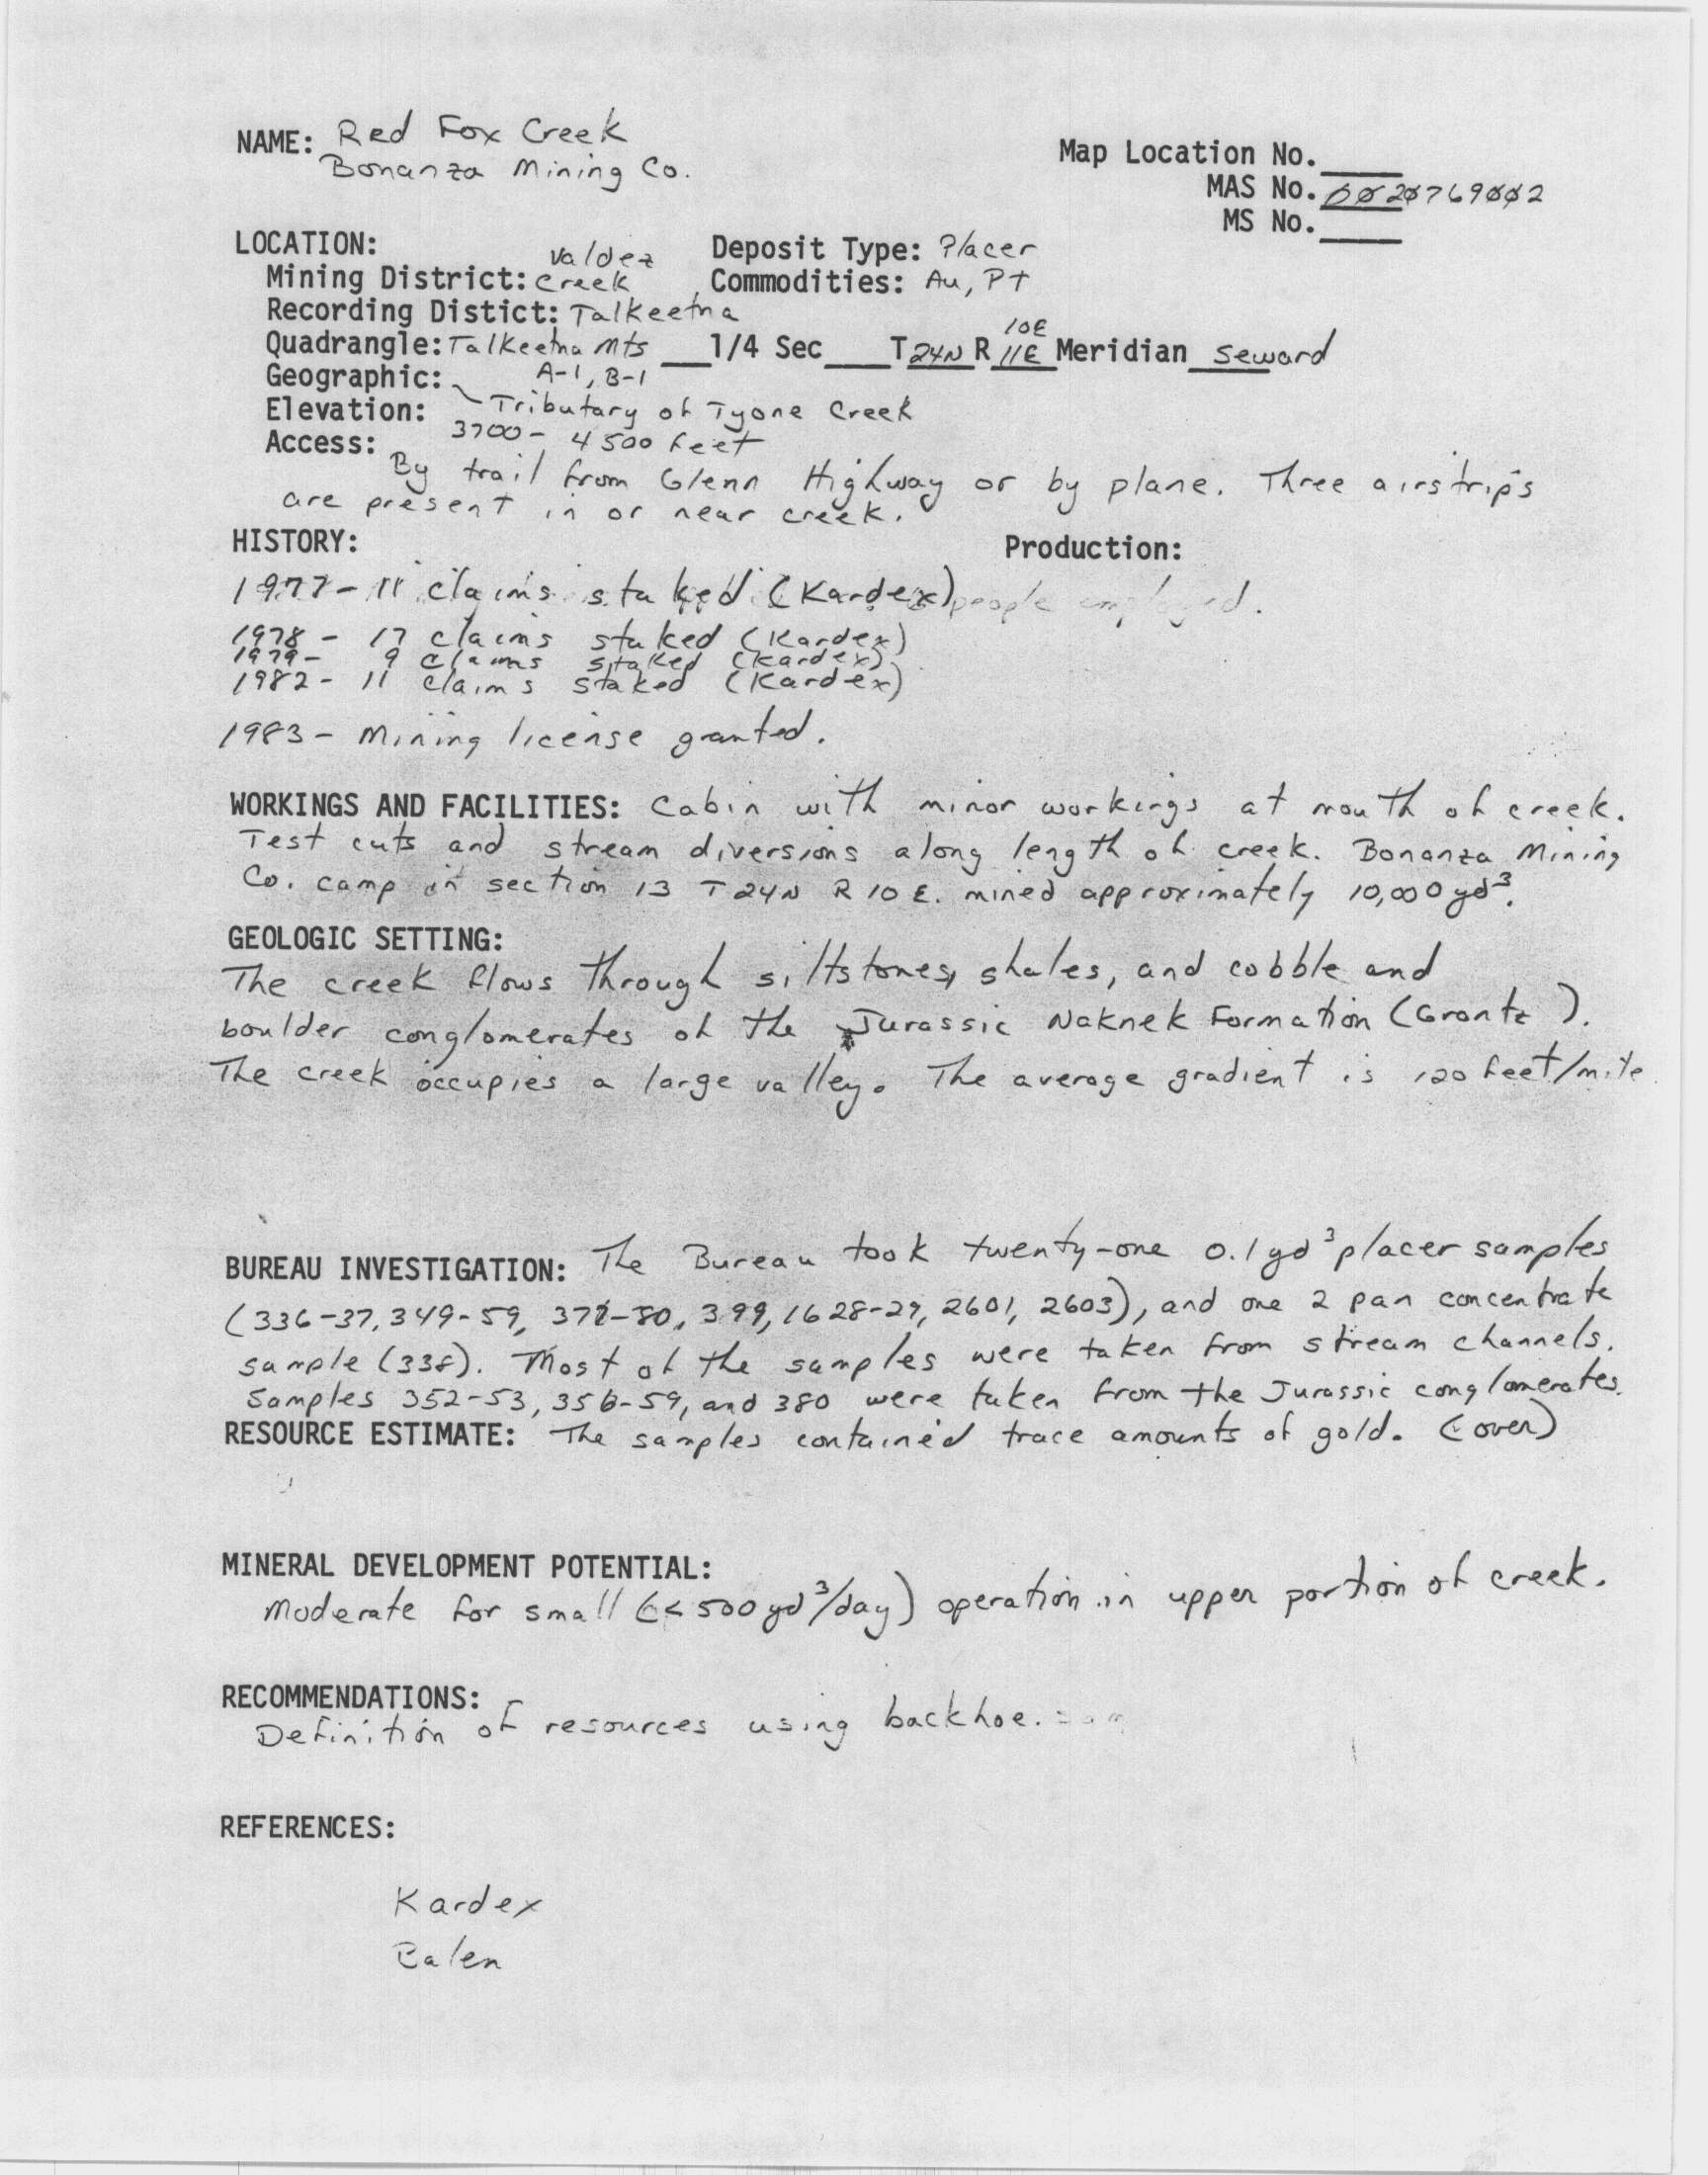 NAME: Red Fox Creek
Bonanza Mining Co.
Map Location No.
MAS No. 0020769002
MS No.
LOCATION:
Mining District: Valdez Creek
Deposit Type: Placer
Commodities: Au, Pt
Recording Distict: Talkeetna
Quadrangle: Talkeetna Mts ___1/4 Sec ___ T 24N R 10E 11E Meridian Seward
A-1, B-1
Geographic: Tributary of Tyone Creek
Elevation: 3700 - 4500 feet
Access: By trail from Glenn Highway or by plane. Three airstrips
are present in or near creek.
HISTORY:
Production:
1977 - 11 claims staked (Kardex) people employed.
1978 - 17 claims staked (Kardex)
1979 - 9 claims staked (Kardex)
1982 - 11 claims staked (Kardex)
1983 - Mining license granted.
WORKINGS AND FACILITIES: Cabin with minor workings at mouth of creek.
Test cuts and stream diversions along length of creek. Bonanza Mining
Co. camp in section 13 T24N R10E. mined approximately 10,000 yd³.
GEOLOGIC SETTING:
The creek flows through siltstones, shales, and cobble and
boulder conglomerates of the Jurassic Naknek Formation (Grantz ).
The creek occupies a large valley. The average gradient is 120 feet/mile
BUREAU INVESTIGATION: The Bureau took twenty-one 0.1 yd³ placer samples
(336-37, 349-59, 377-80, 399, 1628-29, 2601, 2603), and one 2 pan concentrate
sample (338). Most of the samples were taken from stream channels.
Samples 352-53, 356-59, and 380 were taken from the Jurassic conglomerates.
RESOURCE ESTIMATE: The samples contained trace amounts of gold. (over)
MINERAL DEVELOPMENT POTENTIAL:
Moderate for small (<500 yd³/day) operation in upper portion of creek.
RECOMMENDATIONS:
Definition of resources using backhoe.
REFERENCES:
Kardex
Balen